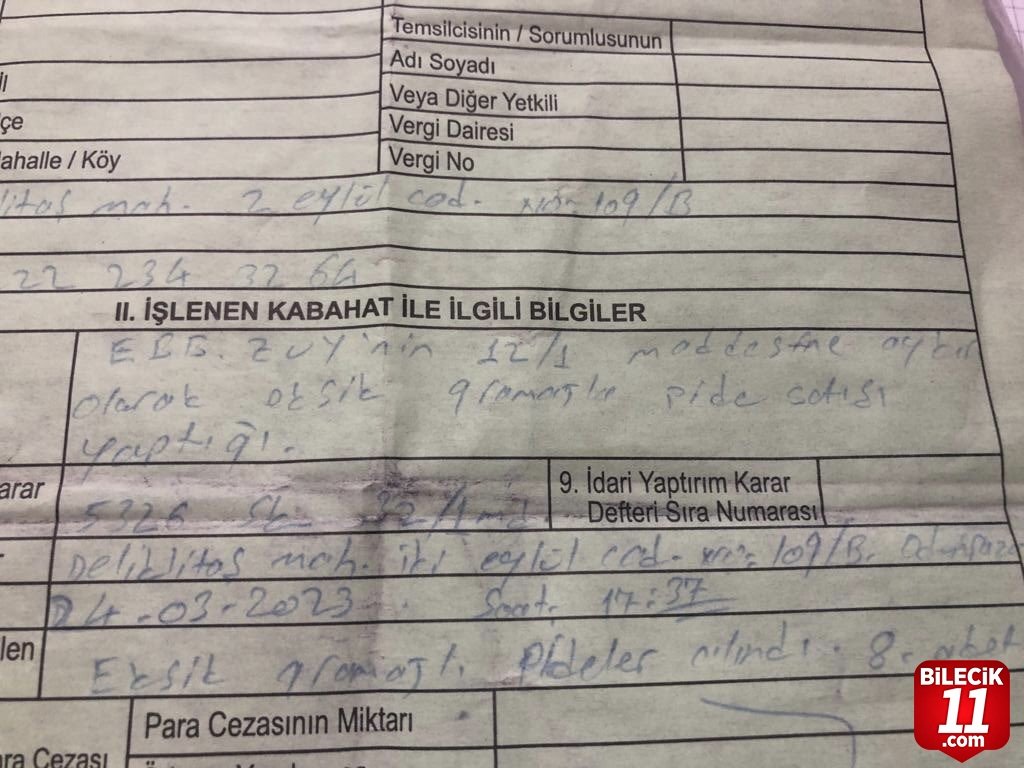 Temsilcisinin / Sorumlusunun
Adı Soyadı
Veya Diğer Yetkili
çe
Vergi Dairesi
ahalle / Köy
Vergi No
litaş mah. 2 eylül cad. no: 109/B
22 234 32 64
II. İŞLENEN KABAHAT İLE İLGİLİ BİLGİLER
EBB. ZUY'nin 12/1 maddesine aykırı
olarak eksik gramajla pide satışı
yaptığı.
arar
5326 Sk. 32/1 md.
9. İdari Yaptırım Karar
Defteri Sıra Numarası
Deliklitaş mah. iki eylül cad. no: 109/B. Odunpaza
24-03-2023. Saat. 17:37
len
Eksik gramajlı pideler alındı. 8. adet
Para Cezasının Miktarı
ara Cezası
BİLECİK
11
.com